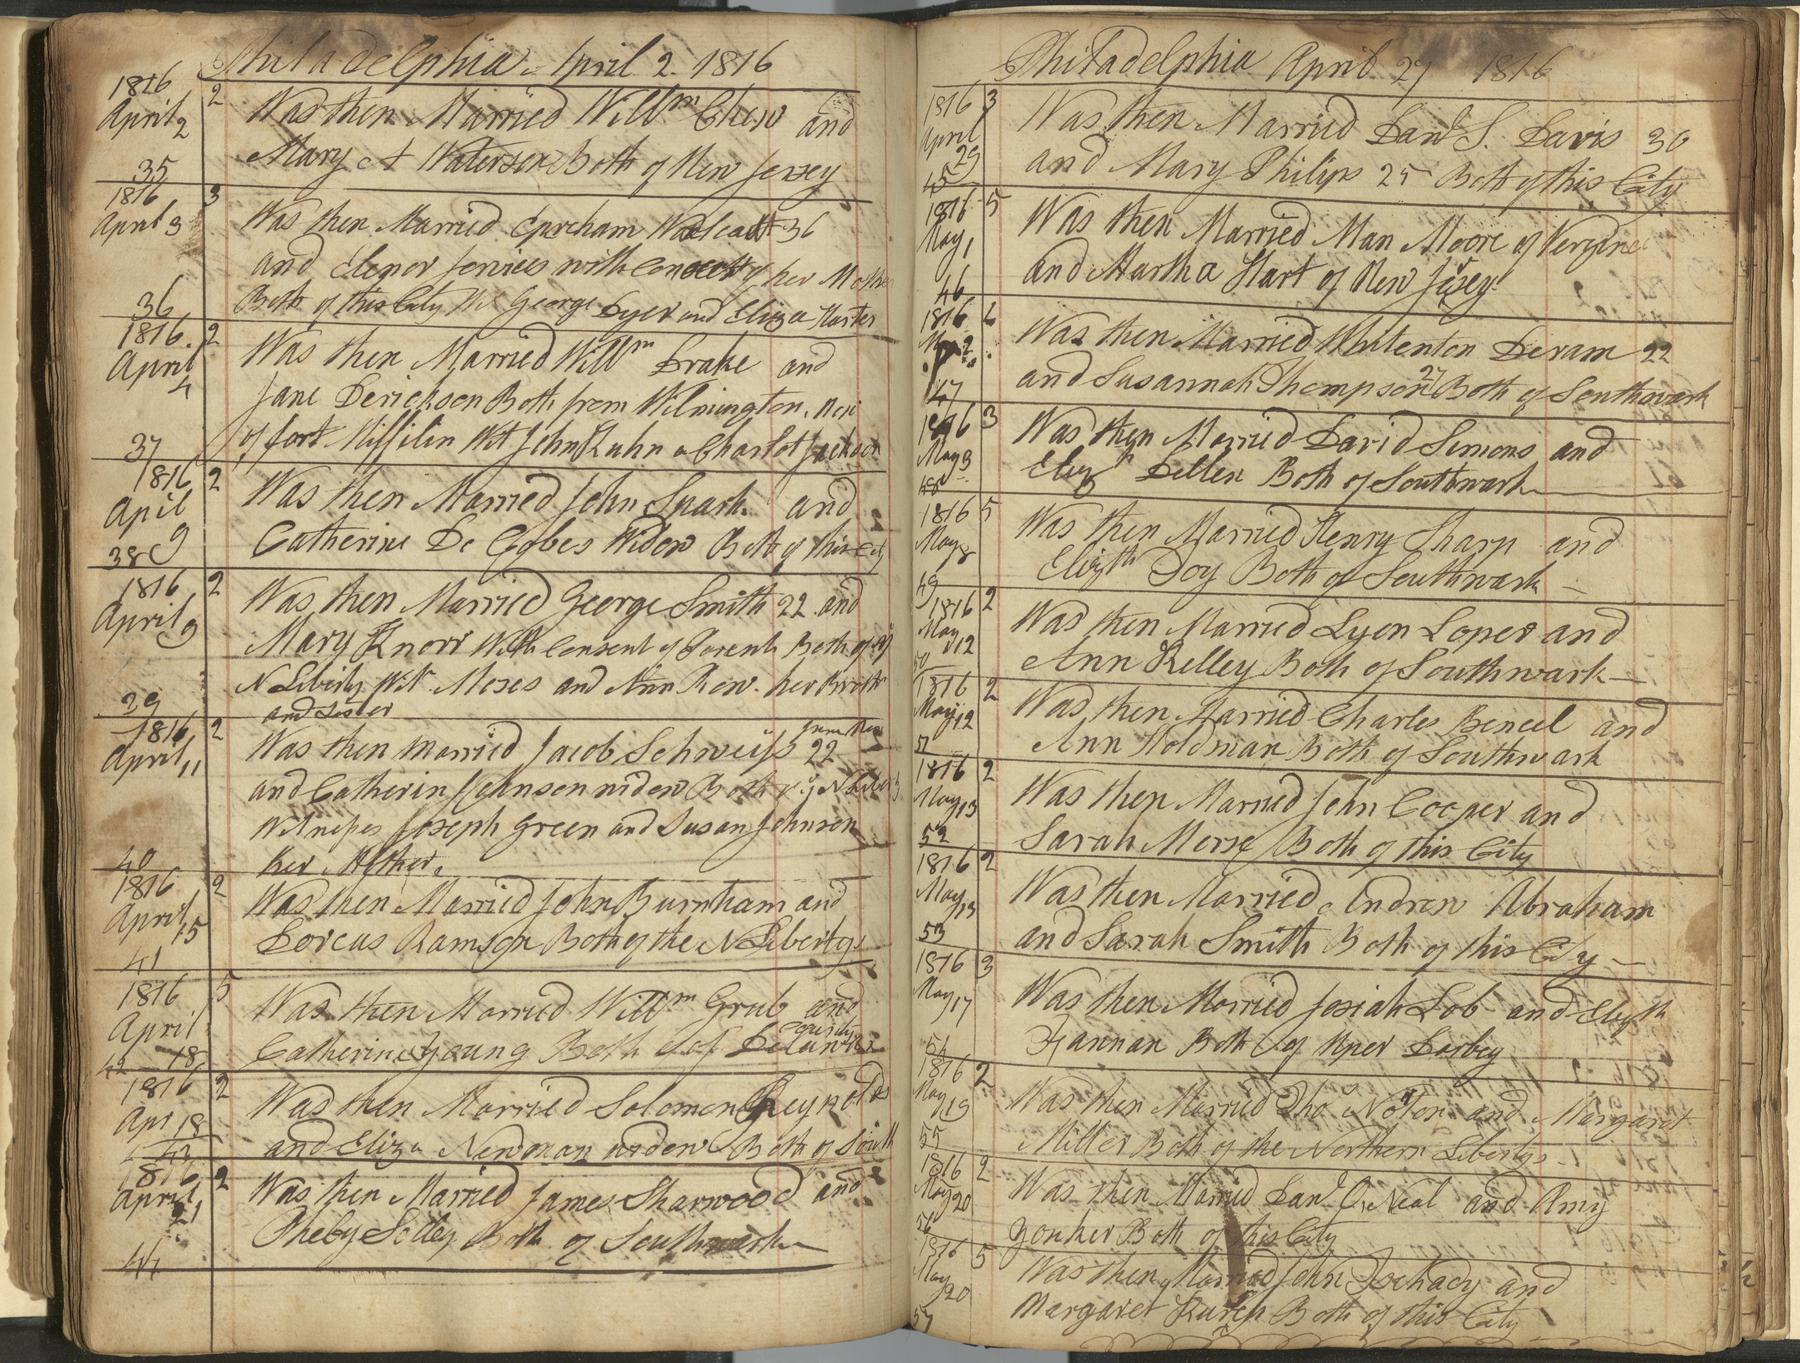 Philadelphia April 2. 1816
1816
April 2
35
2
Was then Married Willm Chew and
Mary A Waterson Both of New Jersey
1816
April 3
36
3
Was then Married Epreham Walcott 36
and Elenor Jervies with Concent of her Mother
Both of this City Wt George Dyer and Eliza Harker
1816.
April
4
37
2
Was then Married Willm Drake and
Jane Derickson Both from Wilmington, Now
of fort Mifflin Wt John Kuhn & Charlot Jackson
1816
April
9
38
2
Was then Married John Spark and
Catherine De Cobes Widow Both of this City
1816
April 9
39
2
Was then Married George Smith 22 and
Mary Knorr With Consent of Parents Both of
N Liberty Wit. Moses and Ann Row. her Brother
and Sister
1816
April 11
40
2
Was then married Jacob Schweiss 22
and Catherin Johnson widow Both of N Liberty
Witnesses Joseph Green and Susan Johnson
her Mother.
1816
April 15
41
2
Was then Married John Burnham and
Dorcus Ramson Both of the N Libertys
1816
April
18
42
5
Was then Married Willm Grub and
Catherine Young Both of Delaware
County
1816
Apr 18
43
2
Was then Married Solomon Reynolds
and Eliza Newman widow Both of South
1816
April 21
44
2
Was then Married James Sharwood and
Pheby Solley Both of Southwark
Philadelphia April 27 1816
1816
April
29
45
3
Was then Married Danl S. Davis 30
and Mary Philips 25 Both of this City
1816
May 1
46
5
Was then Married Man Moore of Vergine
and Martha Hart of New Jersey
1816
May 2
47
6
Was then Married Whitenton Deram 22
and Susannah Thompson 27 Both of Southwark
1816
May 3
48
3
Was then Married David Simons and
Elizh Dellen Both of Southwark
1816
May 8
49
5
Was then Married Henry Sharp and
Elizth Doy Both of Southwark
1816
May 12
50
2
Was then Married Lyon Loper and
Ann Kelley Both of Southwark
1816
May 12
51
2
Was then Married Charles Bencel and
Ann Holdman Both of Southwark
1816
May 13
52
2
Was then Married John Cooper and
Sarah Morse Both of this City
1816
May 13
53
2
Was then Married Andrew Abraham
and Sarah Smith Both of this City
1816
May 17
54
3
Was then Married Josiah Lob and Elizth
Hannan Both of Uper Darbey
1816
May 19
55
2
Was then Married Tho Noton and Margaret
Miller Both of the Northern Libertys
1816
May 20
56
2
Was then Married Danl O,Neal and Amy
Yonker Both of this City
1816
May 20
57
5
Was then Married John and
Margaret Both of this City